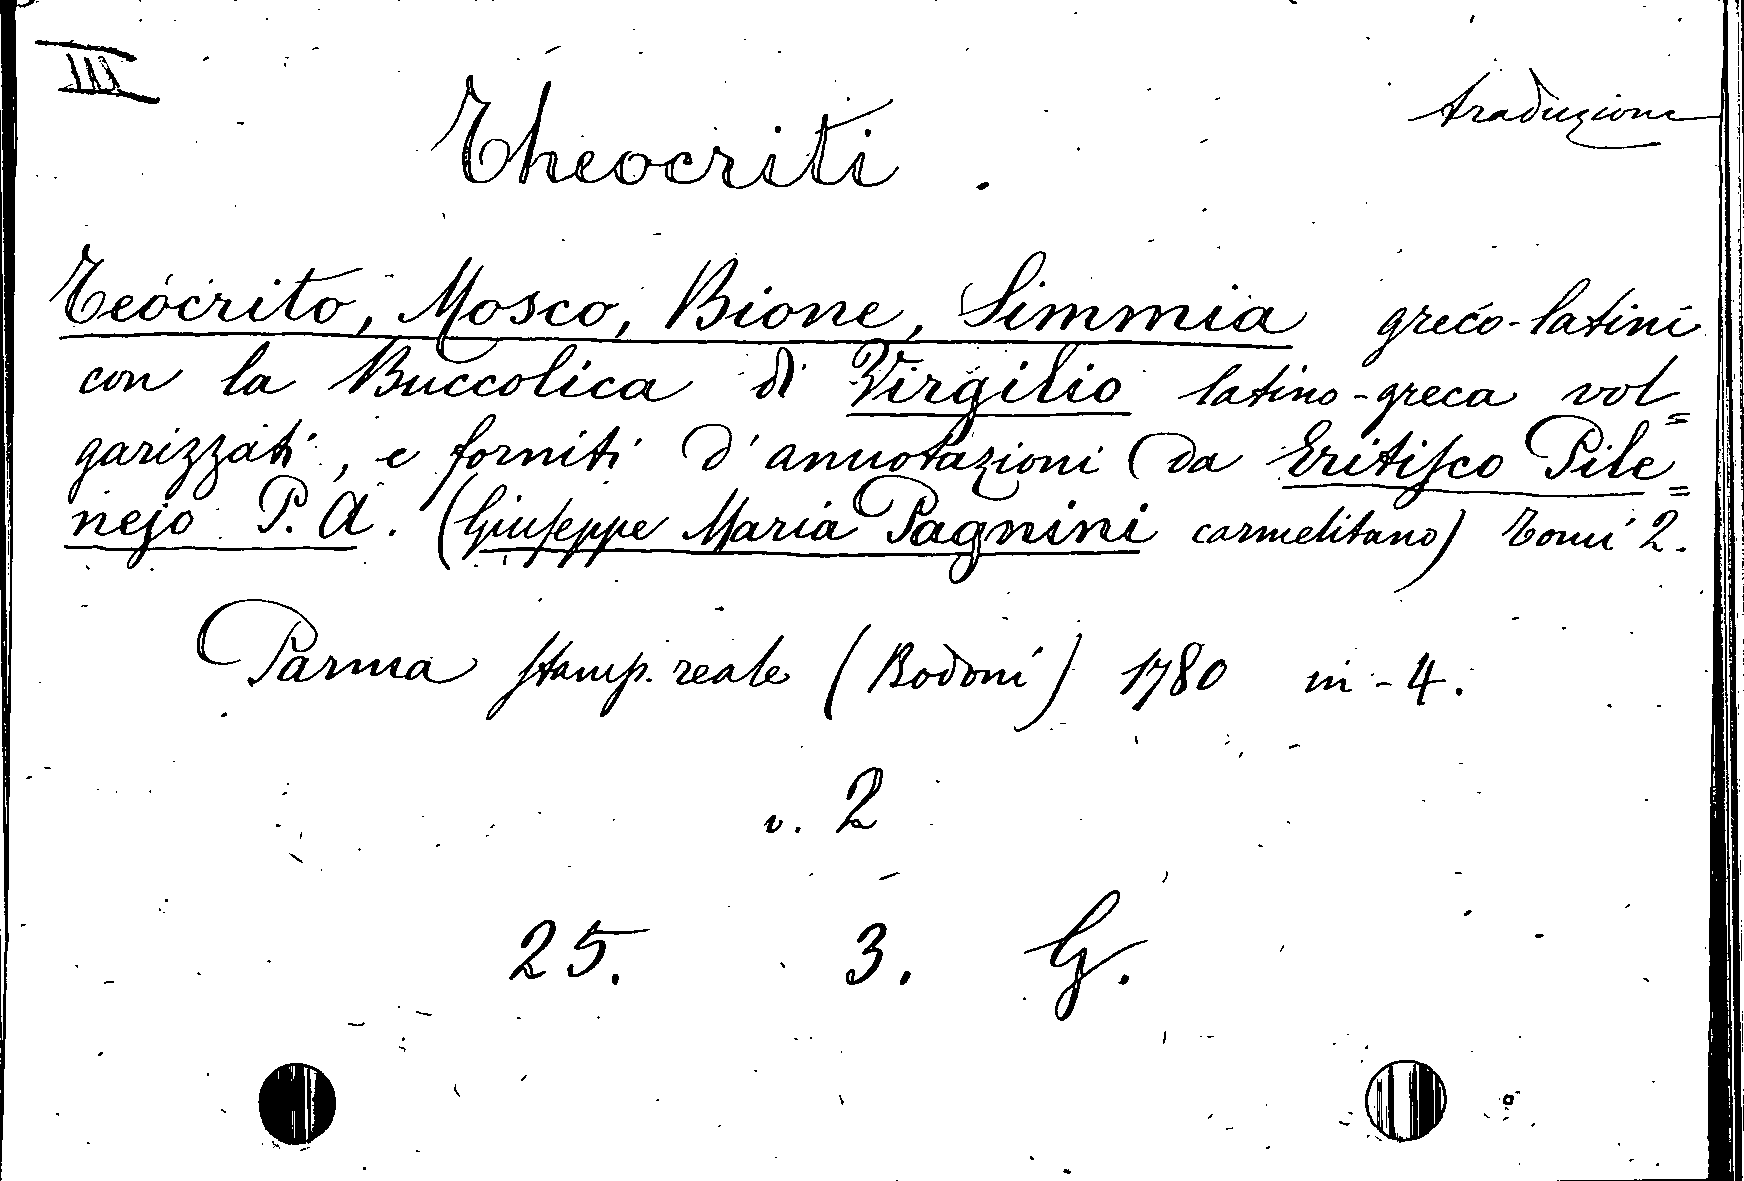 III
traduzione
Theocriti.
Teócrito, Mosco, Bione, Simmia greco-latini
con la Buccolica di Virgilio latino-greca vol=
garizzati, e forniti d'annotazioni (da Eritisco Pile=
nejo P. A. (Giuseppe Maria Pagnini carmelitano) Tomi 2.
Parma stamp. reale (Bodoni) 1780 in-4.
v. 2
25. 3. G.